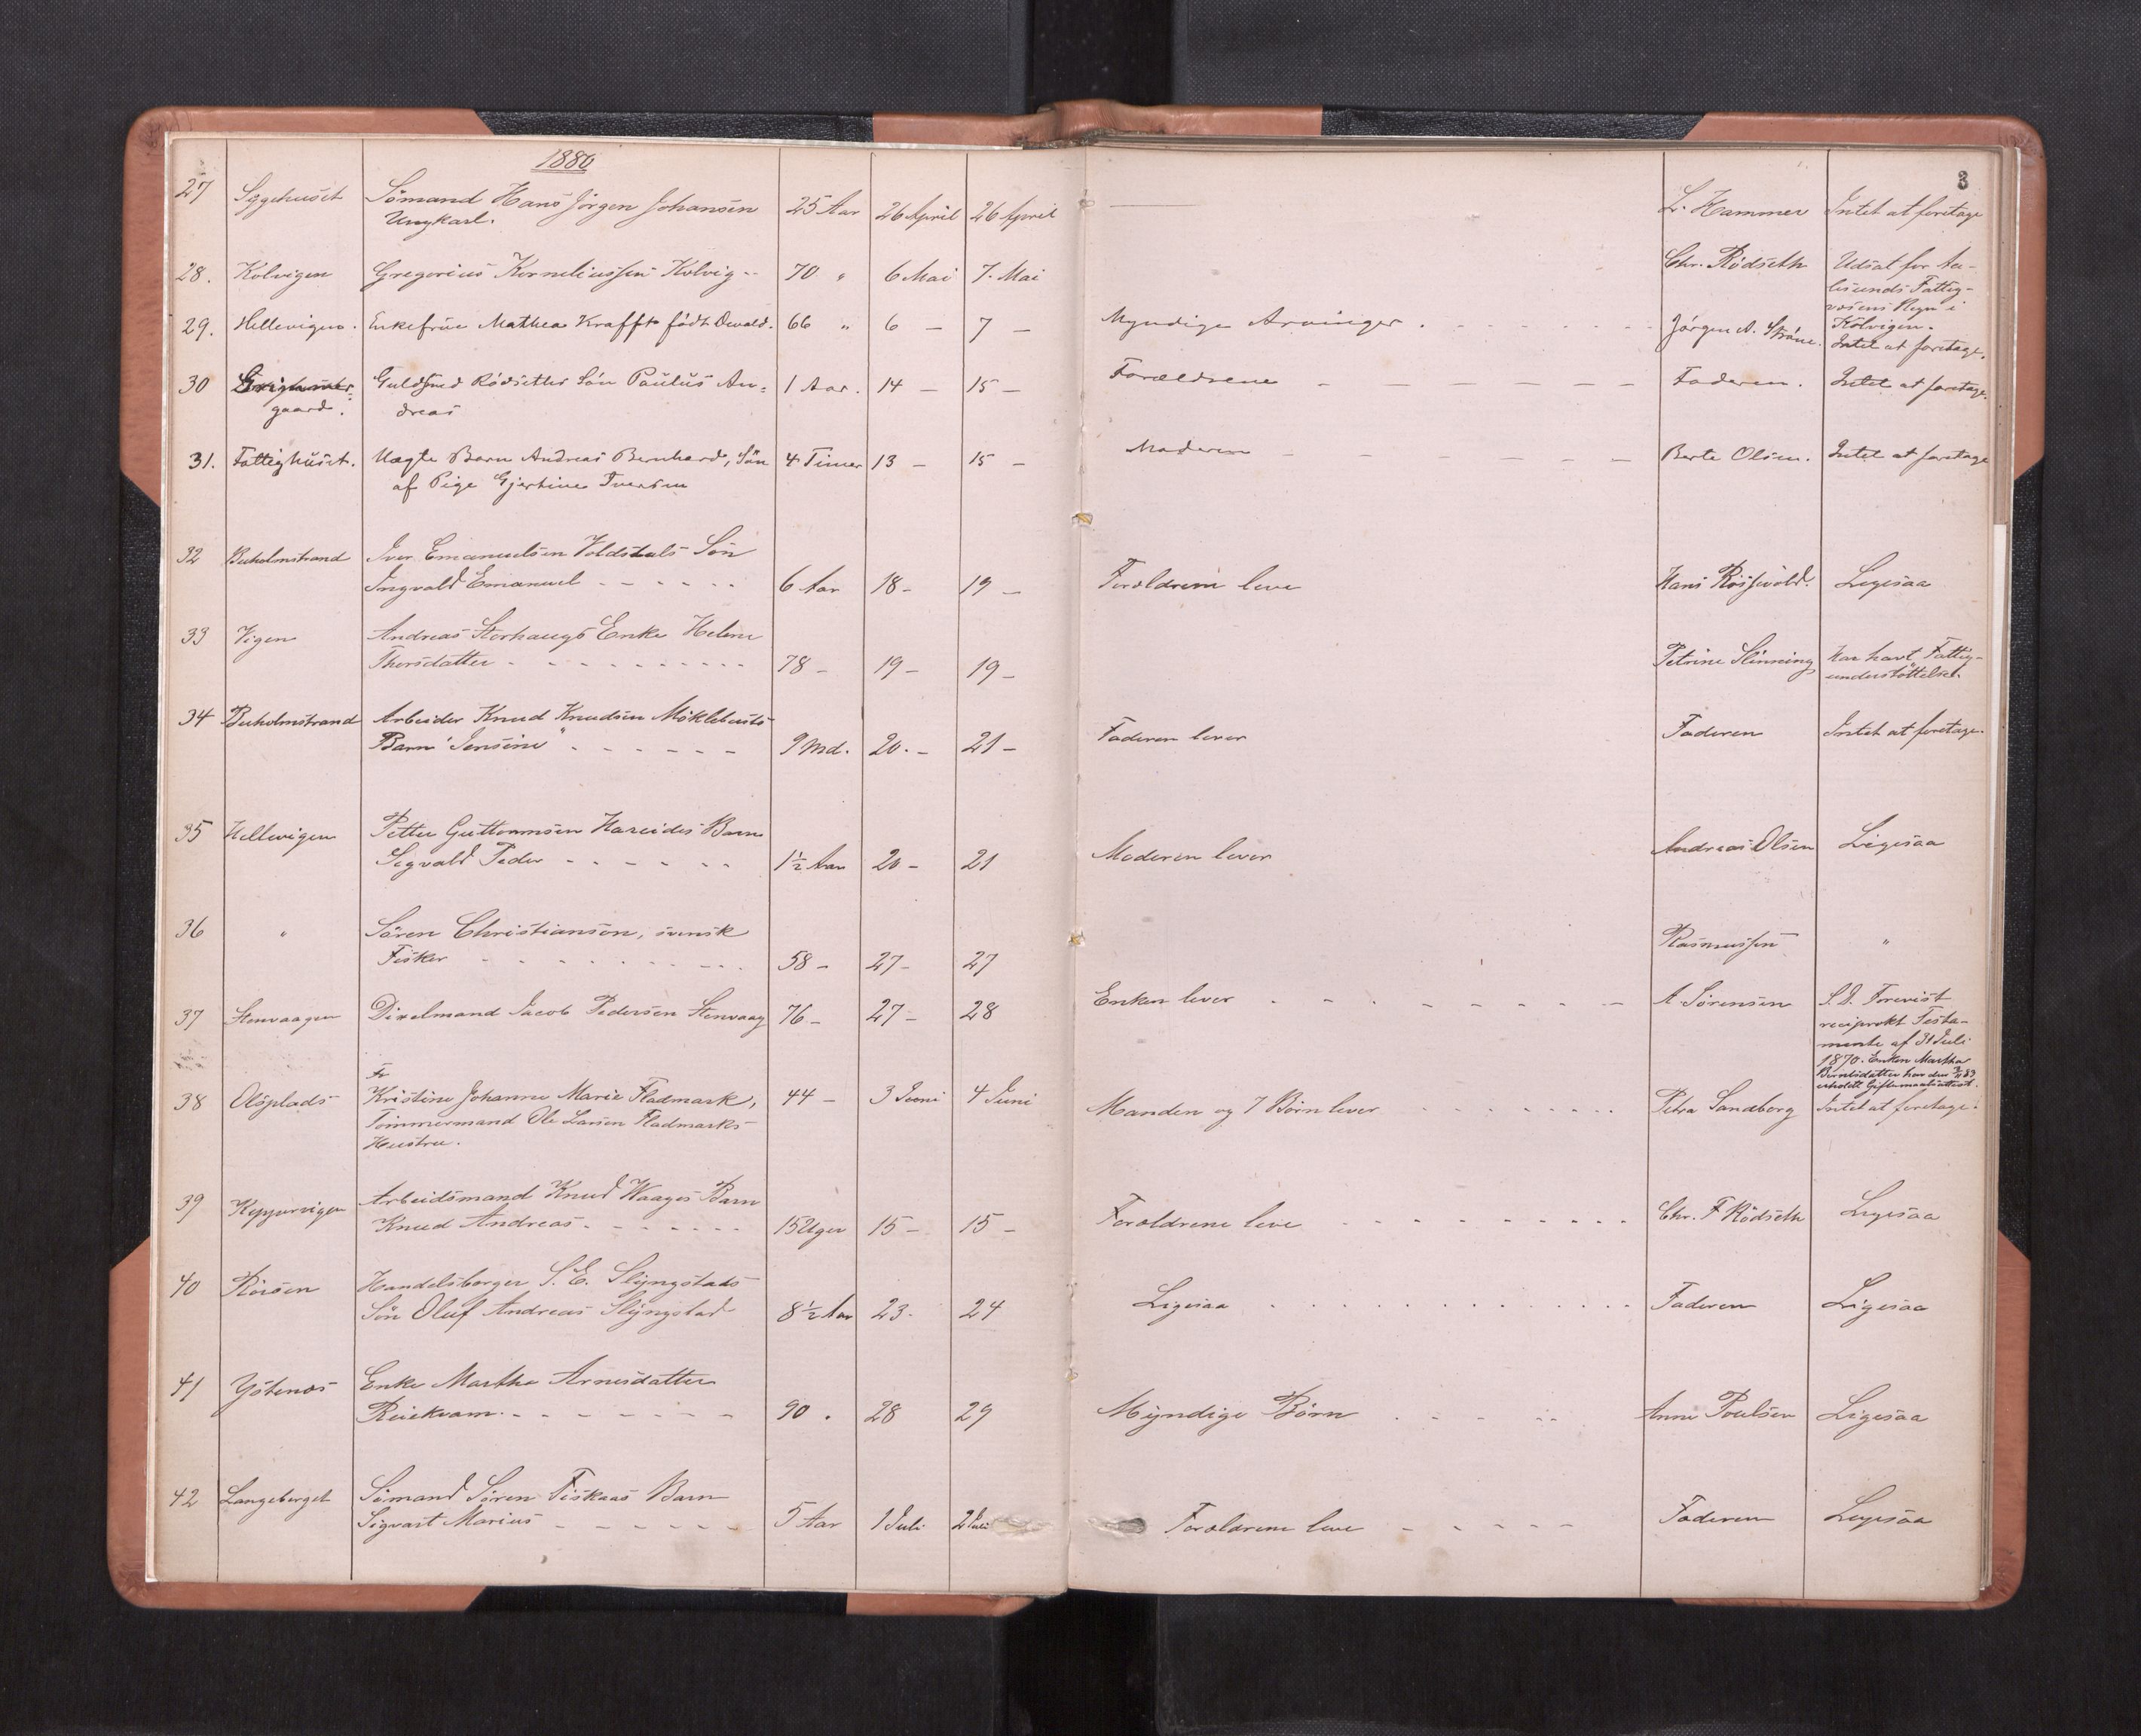 1880
3
27 Sygehuset Sömand Hans Jörgen Johansen 25 Aar 26 April 26 April L. Hammer Intet at foretage
Ungkarl.
28. Kolvigen Gregorius Korneliussen Kolvig 70 " 6 Mai 7. Mai Chr. Rödseth Udsat for Aa-
lesunds Fattig-
væsens Regn i
Kölvigen.
29. Hellevigen. Enkefrue Mathea Krafft födt Devold. 66 " 6 — 7 — Myndige Arvinger. Jörgen A. Intet at foretage.
30 Guldsmed Rödsetters Sön Paulus An- 1 Aar. 14 — 15 — Forældrene Faderen. Intet at foretage.
gaard. dreas
31. Fattighuset. Uægte Barn Andreas Bernhard, Sön 4 Timer 13 — 15 — Moderen Berte Olsen. Intet at foretage
af Pige Gjertine Iversen
32 Buholmstrand Iver Emanuelsen Voldsdals Sön
Ingvald Emanuel 6 Aar 18 - 19 — Forældrene leve Hans Ligesaa
33 Vigen Andreas Storhaugs Enke Helene
Thorsdatter 78 - 19 - 19 - Petrine Slinning Har havt Fattig-
understöttelse.
34 Buholmstrand Arbeider Knud Knudsen Möklebusts
Barn "Jensine" 9 Md. 20. - 21 - Faderen lever Faderen Intet at foretage.
35 Hellevigen Petter Guttormsen Hareides Barn
Sigvald Peder 1½ Aar 20 - 21 Moderen lever Andreas Olsen Ligesaa
36 " Sören Christiansen, svensk
Fisker 58 - 27 - 27 Rasmussen "
37 Stenvaagen Dixelmand Jacob Pedersen Stenvaag 76 - 27 - 28 Enken lever A. Sörensen S. D. Forevist
reciprokt Testa-
mente af 31 Juli
1870. Enken Martha
Berntsdatter har den erholdt Giftemaalsattest.
38 Olsplads Fr
Kristine Johanne Marie Fladmark, 44 - 3 Juni 4 Juni Manden og 7 Börn lever Petra Sandborg Intet at foretage.
Tömmermand Ole Larsen Fladmarks
Hustru.
39 Arbeidsmand Knud Waages Barn
Knud Andreas 15 Uger 15 - 15 - Forældrene leve Chr. F Rödseth Ligesaa
40 Rörsen Handelsborger S. E. Slyngstads
Sön Oluf Andreas Slyngstad 8½ Aar 23. 24 Ligesaa Faderen Ligesaa
41 Enke Marthe Arnesdatter
90. 28 29 Myndige Börn Anne Poulsen Ligesaa
42 Langeberget Sömand Sören Fiskaas Barn
Sigvart Marius 5 Aar 1 Juli 2 Juli Forældrene leve Faderen Ligesaa